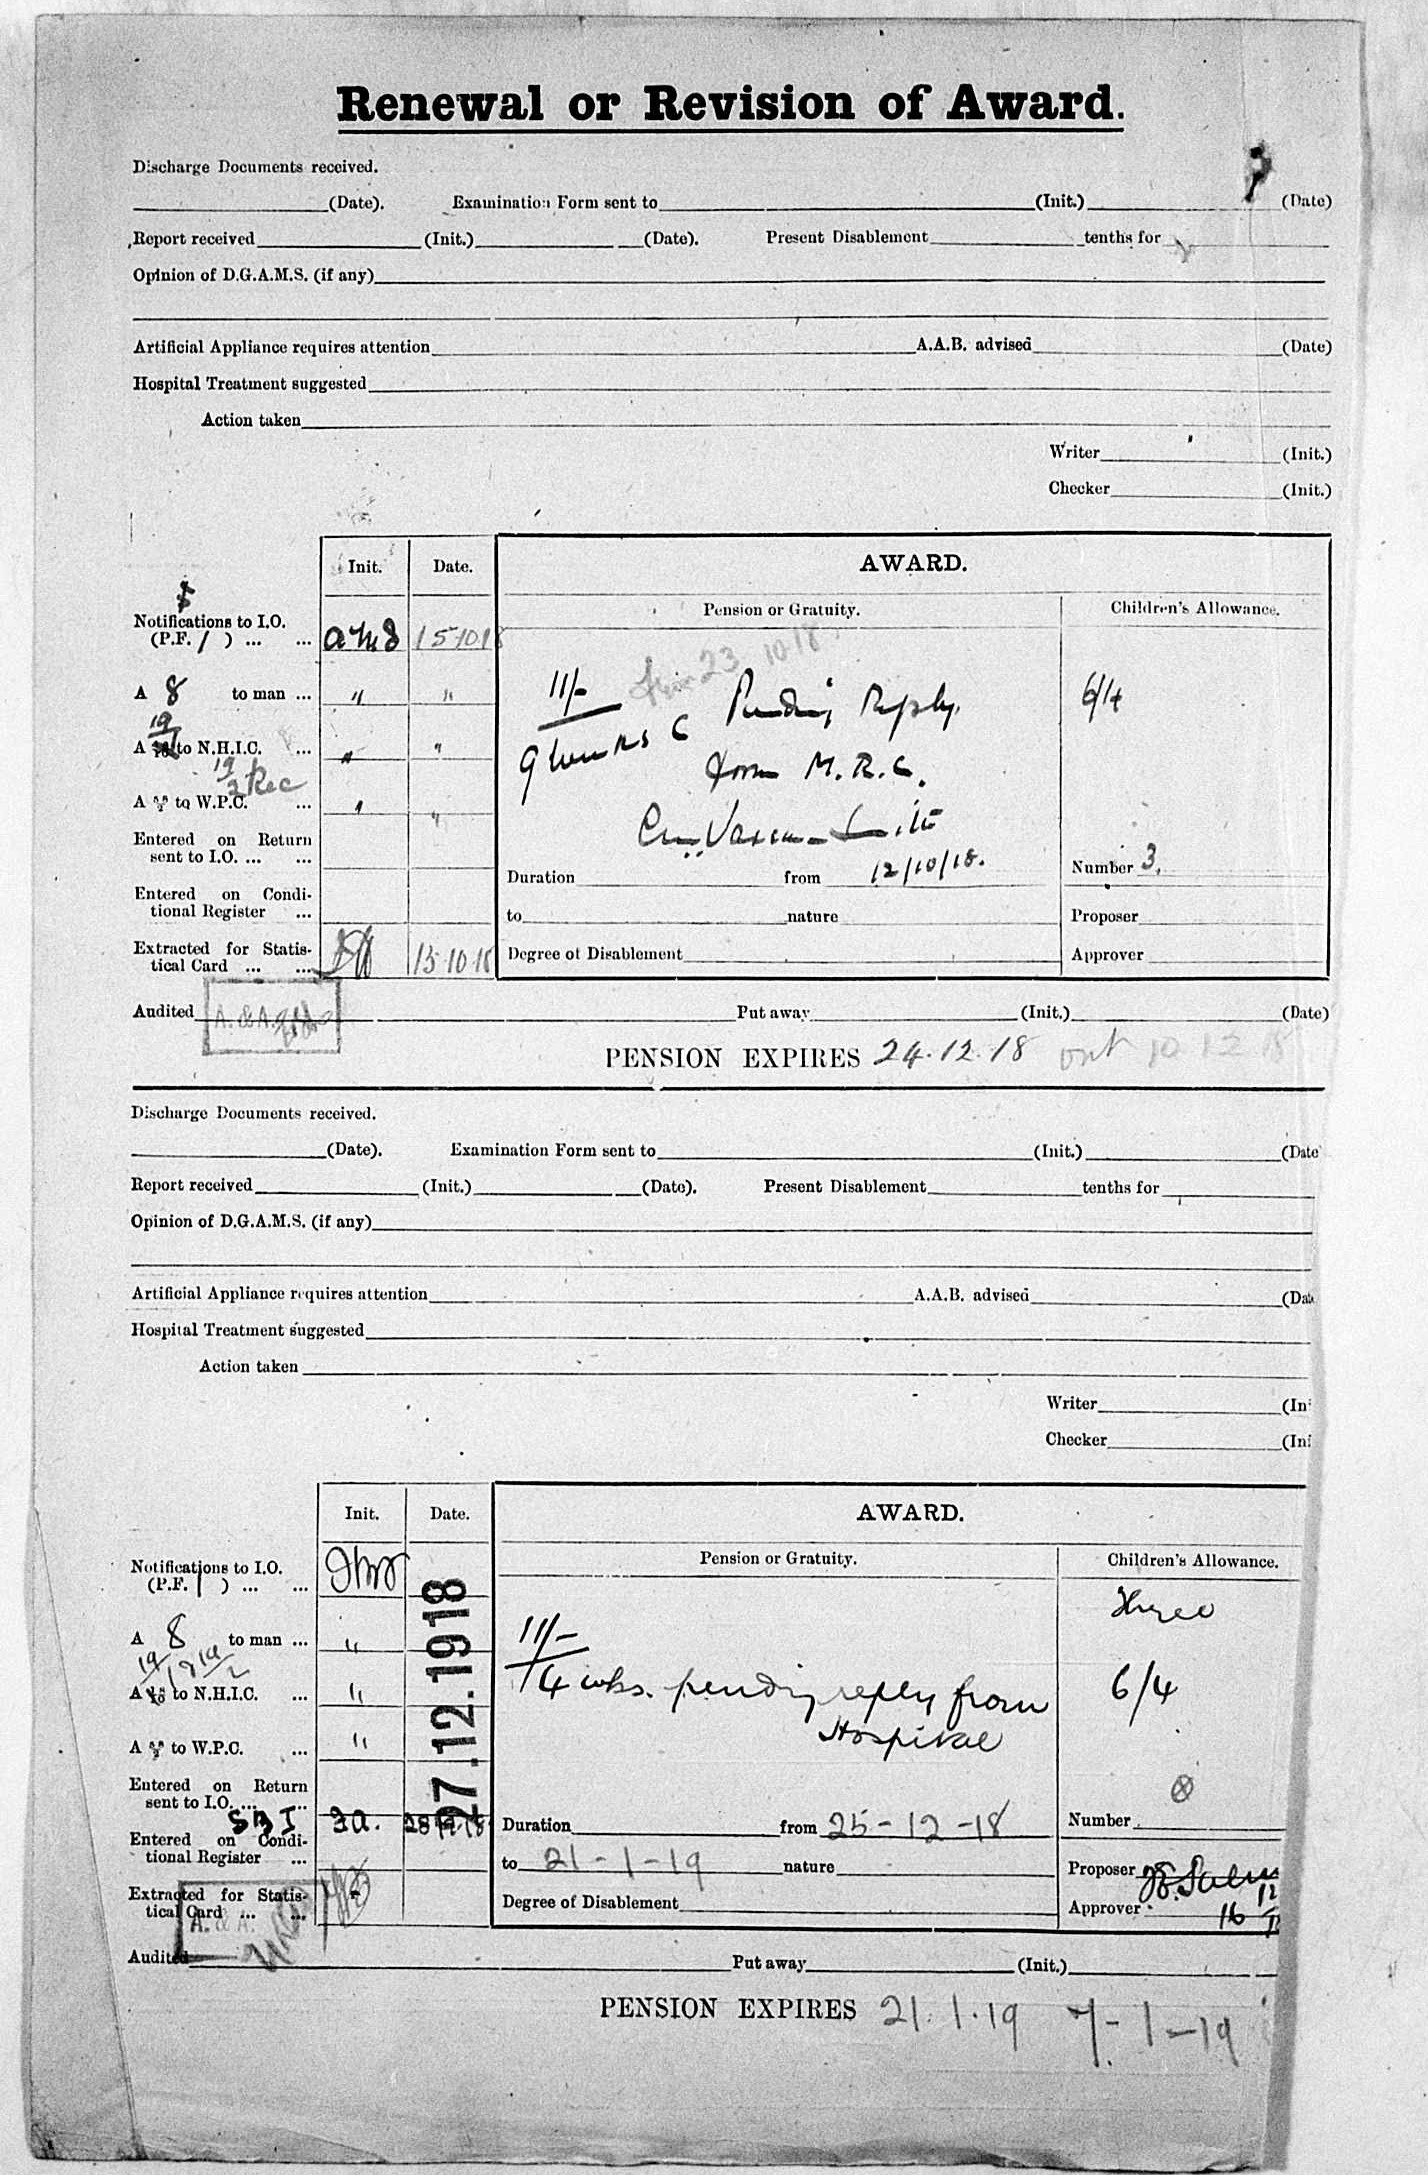 Renewal or Revision of Award.
Discharge Documents received.
(Date). Examination Form sent to (Init.) (Date)
Report received (Init.) (Date). Present Disablement tenths for
Opinion of D.G.A.M.S. (if any)
Artificial Appliance requires attention A.A.B. advised (Date)
Hospital Treatment suggested
Action taken
Writer (Init.)
Checker (Init.)
Init. Date. AWARD.
Pension or Gratuity. Children's Allowance.
Notifications to I.O.
(P.F. 1 ) ... ... 15 10 18
23 10 18
A 8 to man ... " "
11/- Pending Reply 6/4
9 weeks
19
A to N.H.I.C. ... " "
from M.R.C.
19
2 Rec
A to W.P.C. ... " "
Entered on Return
sent to I.O. ... ...
Duration from 12/10/18. Number 3.
Entered on Condi-
tional Register ...
to nature Proposer
Extracted for Statis-
tical Card ... ... 15 10 18
Degree of Disablement Approver
Audited A. & A. Put away (Init.) (Date)
PENSION EXPIRES 24.12.18 out 10 12 18
Discharge Documents received.
(Date). Examination Form sent to (Init.) (Date
Report received (Init.) (Date). Present Disablement tenths for
Opinion of D.G.A.M.S. (if any)
Artificial Appliance requires attention A.A.B. advised (Dat
Hospital Treatment suggested
Action taken
Writer (In
Checker (Ini
Init. Date. AWARD.
Pension or Gratuity. Children's Allowance.
Notifications to I.O.
(P.F. 1 ) ... ... 27.12.1918
Three
A 8 to man ... "
11/-
19 19
12 2
A to N.H.I.C. ... "
4 wks. pending reply from 6/4
Hospital
A to W.P.C. ... "
Entered on Return
sent to I.O. ... ...
SBI 28 12 18
Duration from 25-12-18 Number
Entered on Condi-
tional Register ...
to 21-1-19 nature Proposer
Extracted for Statis-
tical Card ... ...
A. & A.
Degree of Disablement Approver 16
Audited Put away (Init.)
PENSION EXPIRES 21.1.19 7-1-19